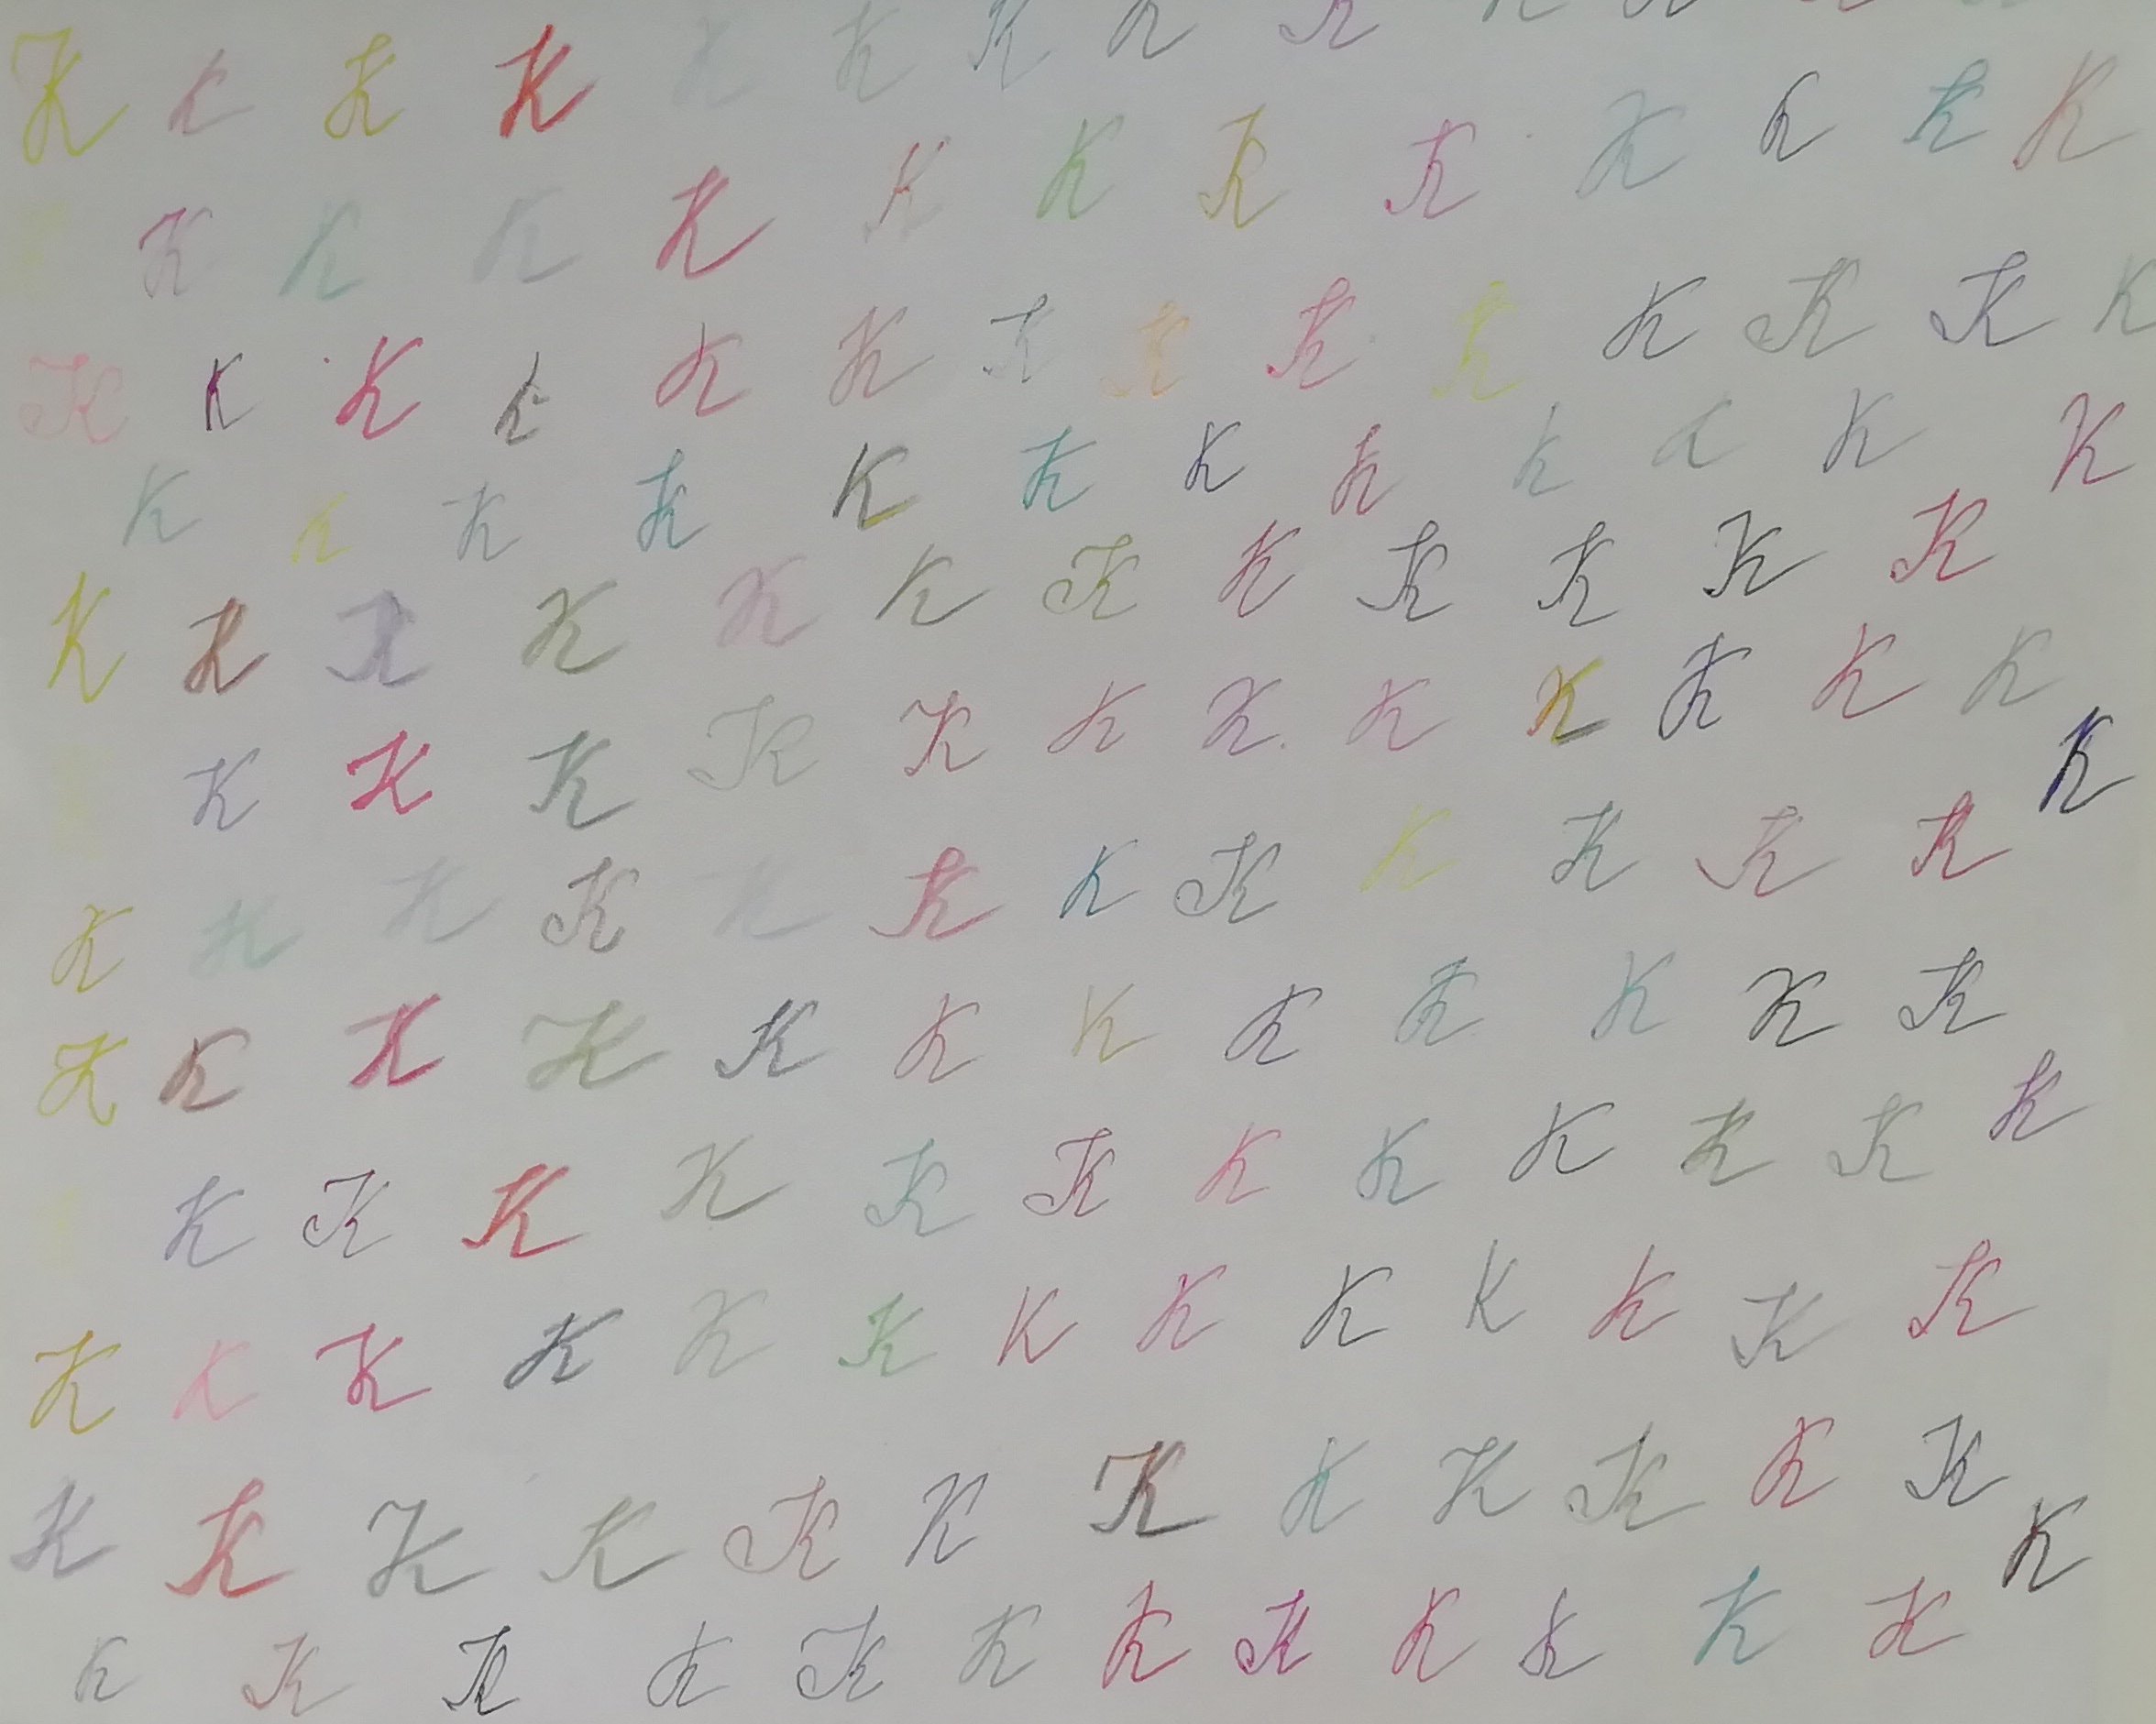 K K K K K K K K K
K K K K K K K K K K K K
K K K K K K K K K K K K K K
K K K K K K K K K K K K
K K K K K K K K K K K K
K K K K K K K K K K K K
K K K K K K K K K K K K K
K K K K K K K K K K K K
K K K K K K K K K K K K
K K K K K K K K K K K K K
K K K K K K K K K K K K
K K K K K K K K K K K K K